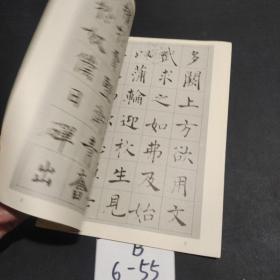 多闕上方欲用文
武求之如弗及始
以蒲輪迎枚生見
奮
奴僕日磾出
B
6-55